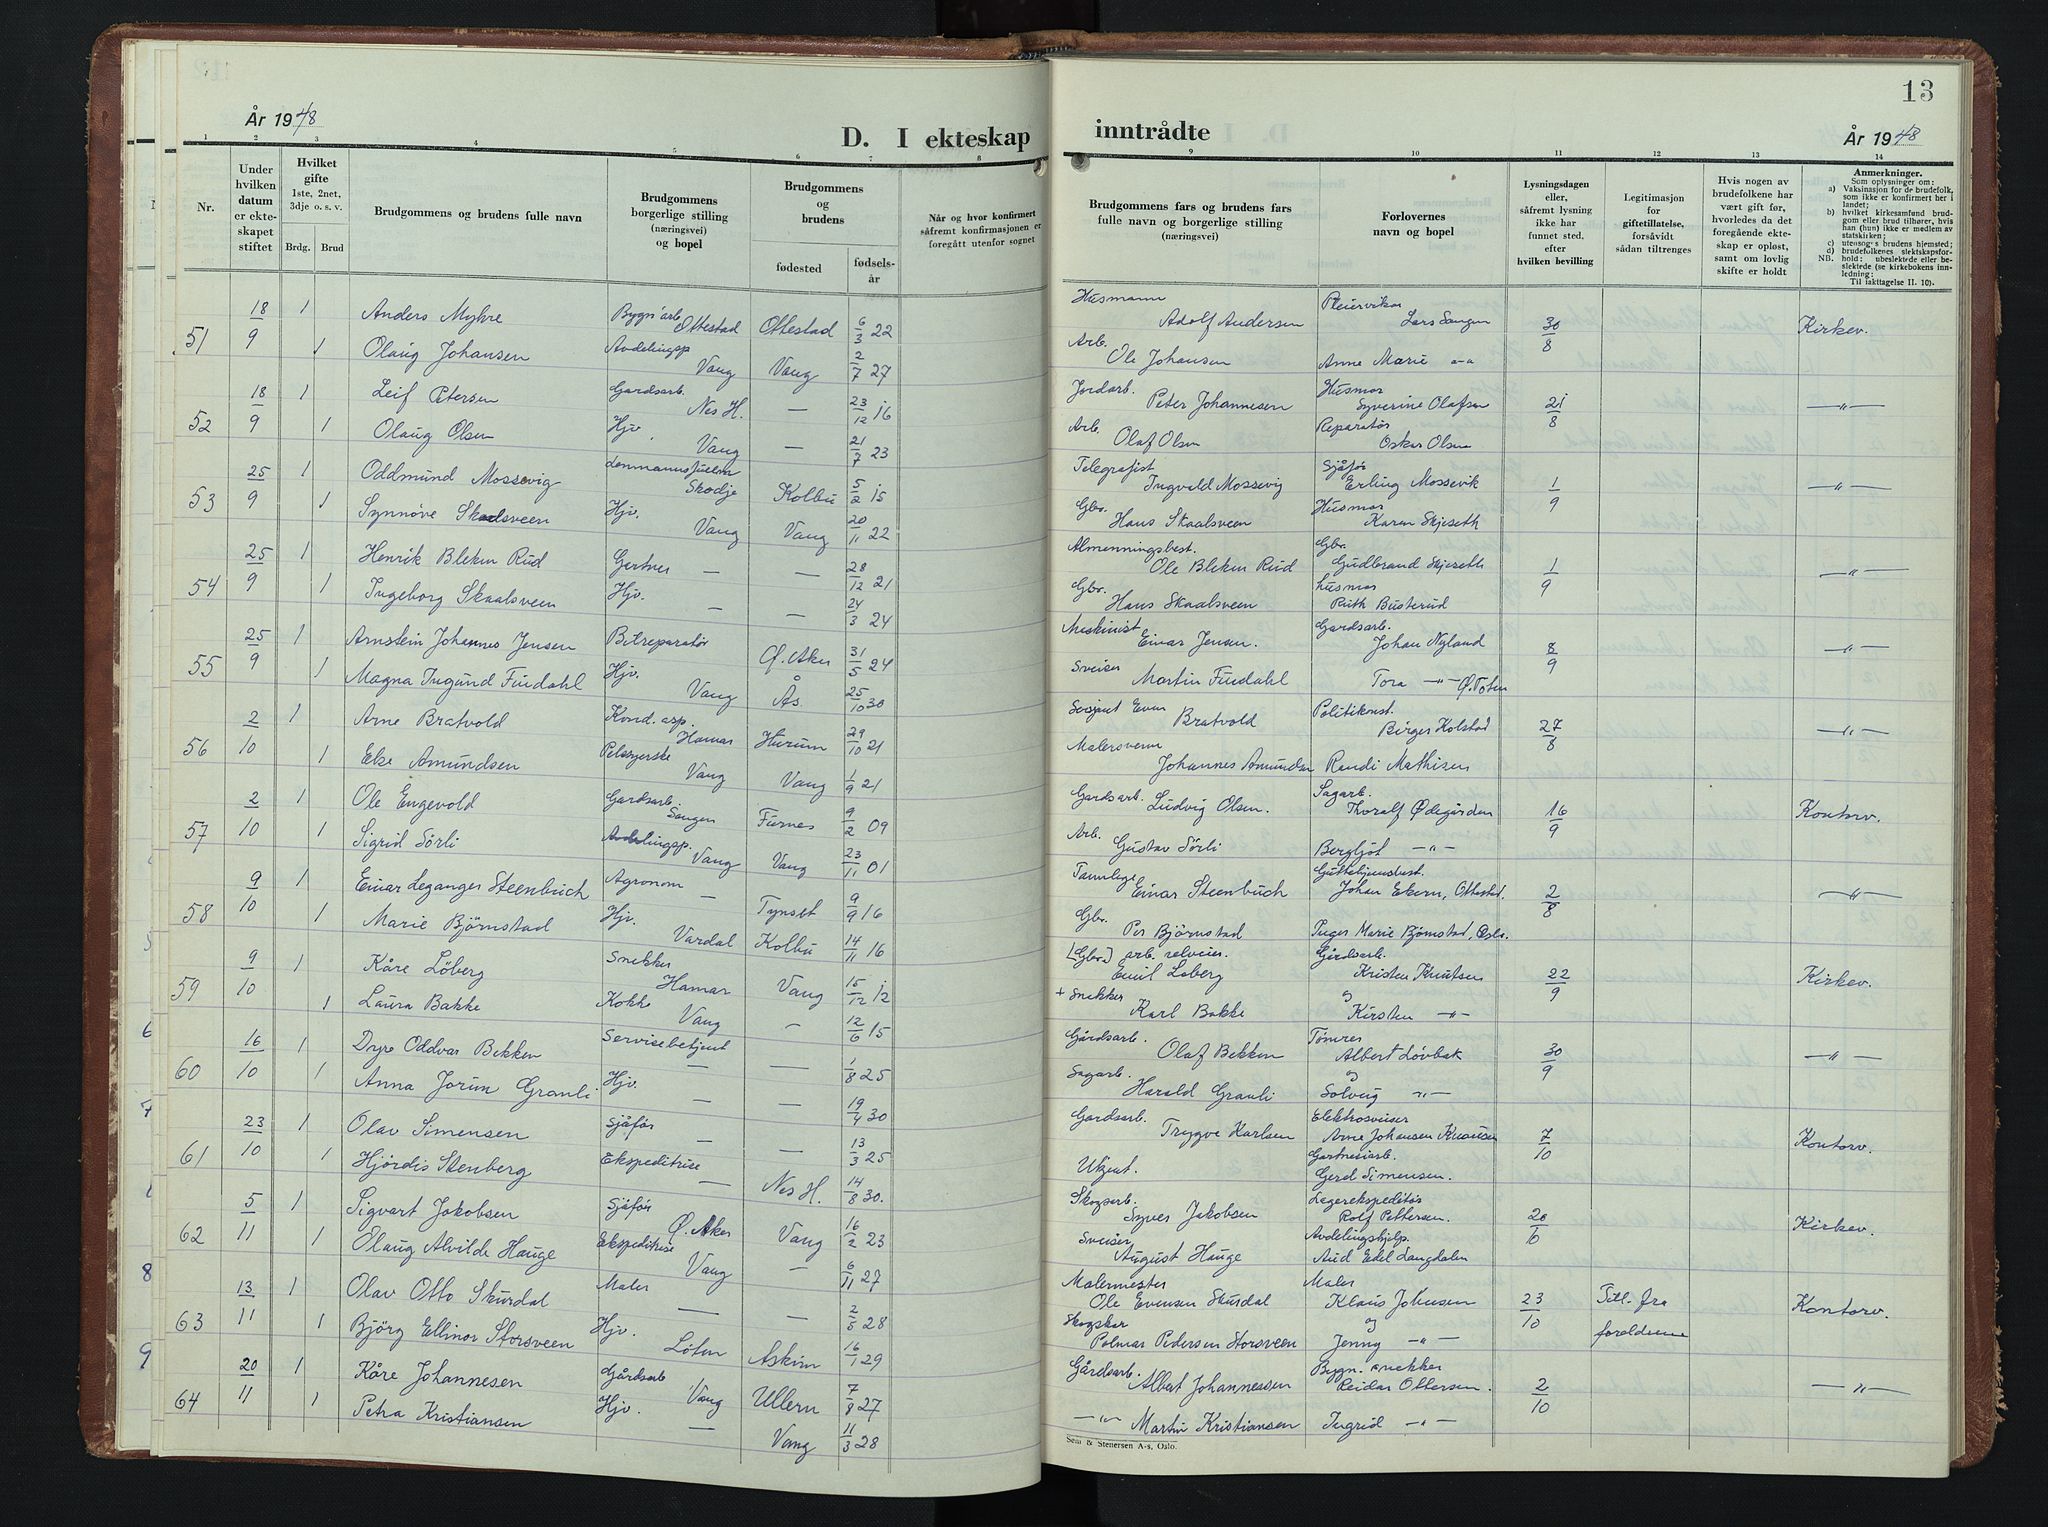 13
År 1948
D. I ekteskap inntrådte
År 1948
1 2 3 4 5 6 7 8 9 10 11 12 13 14
Nr.
Under hvilken datum er ekteskapet stiftet
Hvilket gifte 1ste, 2net, 3dje o. s. v.
Brdg. Brud
Brudgommens og brudens fulle navn
Brudgommens borgerlige stilling (næringsvei) og bopel
Brudgommens og brudens
fødested
fødselsår
Når og hvor konfirmert såfremt konfirmasjonen er foregått utenfor sognet
Brudgommens fars og brudens fars fulle navn og borgerlige stilling (næringsvei)
Forlovernes navn og bopel
Lysningsdagen eller, såfremt lysning ikke har funnet sted, efter hvilken bevilling
Legitimasjon for giftetillatelse, forsåvidt sådan tiltrenges
Hvis nogen av brudefolkene har vært gift før, hvorledes da det foregående ekteskap er opløst, samt om lovlig skifte er holdt
Anmerkninger.
Som oplysning om:
a) Vaksinasjon for de brudefolk, som ikke er konfirmert her i landet;
b) hvilket kirkesamfund brudgom eller brud tilhører, hvis han (hun) ikke er medlem av statskirken;
c) utensogs brudens hjemsted;
d) brudefolkenes slektskapsforhold: ubeslektede eller beslektede (se kirkebokens innledning;
NB. Til iakttagelse II. 10).
51 18/9 1 Anders Myhre Bygn.arb. Ottestad Ottestad 6/3 22 Husmann Adolf Andersen Lars Sangen 30/8 Kirkev.
1 Olaug Johansen Avdelingsp Vang Vang 2/7 27 Arb. Ole Johansen Anne Marie
52 18/9 1 Leif Petersen Gardsarb. Nes H. — 23/12 16 Jordarb. Peter Johannesen Husmor Syverine Olafsen 21/8 —"—
1 Olaug Olsen Hjv. Vang — 21/7 23 Arb. Olaf Olsen Reparatør Oskar Olsen
53 25/9 1 Oddmund Mossevig Skodje Kolbu 5/2 15 Telegrafist Ingvald Mossevig Sjåfør Erling Mossevik 1/9 —"—
1 Synnøve Skaalsveen Hjv. Vang Vang 20/11 22 Gbr. Hans Skaalsveen Husmor Karen Skjeseth
54 25/9 1 Henrik Bleken Rud Gartner — — 28/12 21 Almenningsbest. Ole Bleken Rud Gbr. Gudbrand Skjeseth 1/9 —"—
1 Ingeborg Skaalsveen Hjv. — — 24/3 24 Gbr. Hans Skaalsveen Husmor Ruth Busterud
55 25/9 1 Arnstein Johannes Jensen Bilreparatør Ø. Aker 31/5 24 Maskinist Einar Jensen. Gardsarb. Johan Nyland 8/9 —"—
1 Magna Ingund Findahl Hjv. Vang Ås 25/10 30 Sveiser Martin Findahl Tora —"— Ø. Toten
56 2/10 1 Arne Bratvold Kond. asp. Hamar Hurum 29/10 21 Sersjant Even Bratvold Politikonst. Birger Kolstad 27/8 —"—
1 Else Amundsen Pelssyerske Vang Vang 1/9 21 Malersvenn Johannes Amundsen Randi Mathisen
57 2/10 1 Ole Engevold Gardsarb. Sangen Furnes 9/2 09 Gardsarb. Ludvig Olsen. Sagarb. Thoralf Ødegården 16/9 Kontorv.
1 Sigrid Sörli Avdelingsp. Vang Vang 23/11 01 Arb. Gustav Sörli Bergljot —"—
58 9/10 1 Einar Leganger Steenbuch Agronom — Tynset 9/9 16 Tannlege Einar Steenbuch Johan Ekern, Ottestad. 2/8 —"—
1 Marie Björnstad Hjv. Vardal Kolbu 14/11 16 Gbr. Per Björnstad Inger Marie Bjørnstad, Oslo.
59 9/10 1 Kåre Löberg Snekker Hamar Vang 15/12 12 [Gbr.] arb. Emil Loberg Gårdsarb. Kristen Knutsen 22/9 Kirkev.
1 Laura Bakke Kokke Vang — 12/6 15 + Snekker Karl Bakke og Kirsten —"—
60 16/10 1 Dyre Oddvar Bekken Servisebetjent — — 1/8 25 Gårdsarb. Olaf Bekken Tømrer Albert Lövbak 30/9 —"—
1 Anna Jorun Granli Hjv. — — 19/4 30 Sagarb. Harald Granli og Solveig —"—
61 23/10 1 Olav Simensen Sjåfør — — 13/3 25 Gardsarb. Trygve Karlsen Elektrosveiser Arne Johansen Knausen 7/10 Kontorv.
1 Hjördis Stenberg Ekspeditrise — Nes H. 14/8 30. Ukjent. Gartneriarb. Gerd Simensen.
62 5/11 1 Sigvart Jakobsen Sjåfør Ø. Aker Vang 16/2 23 Skogsarb. Syver Jakobsen Lagerekspeditør Rolf Pettersen. 20/10 Kirkev.
1 Olaug Alvilde Hauge Ekspeditrise Vang — 6/11 27 Sveiser August Hauge Avdelingshjelp. Aud Edel Langdalen
63 13/11 1 Olav Otto Skurdal Maler — — 2/5 28 Malermester Ole Evensen Skurdal Maler Klaus Johnsen 23/10 Till. fra foreldrene Kontorv.
1 Björg Ellinor Storsveen Hjv. Løten Askim 16/1 29 Skogskar Polmar Pedersen Storsveen og Jenny —"—
64 20/11 1 Kåre Johannesen Gårdsarb. Vang Ullern 7/8 27 Gårdsarb. Albert Johannessen Bygn. snekker Reidar Ottersen. 2/10 —"—
1 Petra Kristiansen Hjv. — Vang 11/3 28 —"— Martin Kristiansen Ingrid —"—
Sem & Stenersen A-s, Oslo.